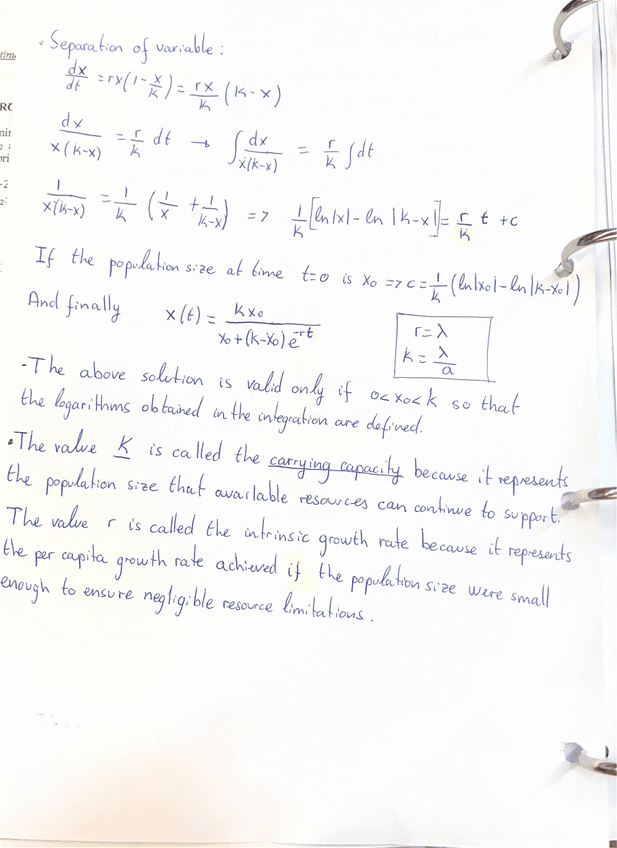 • Separation of variable :
dx/dt = rx(1 - x/K) = rx/K (K - x)
dx/x(K-x) = r/K dt → ∫ dx/x(K-x) = r/K ∫ dt
1/x(K-x) = 1/K (1/x + 1/K-x) => 1/K [ln|x| - ln |K-x|] = r/K t + c
If the population size at time t=0 is x₀ => c = 1/K (ln|x₀| - ln|K-x₀|)
And finally x(t) = K x₀ / x₀ + (K-x₀) e^-rt
r = λ
K = λ/a
- The above solution is valid only if 0 < x₀ < K so that
the logarithms obtained in the integration are defined.
• The value K is called the carrying capacity because it represents
the population size that available resources can continue to support.
The value r is called the intrinsic growth rate because it represents
the per capita growth rate achieved if the population size were small
enough to ensure negligible resource limitations.